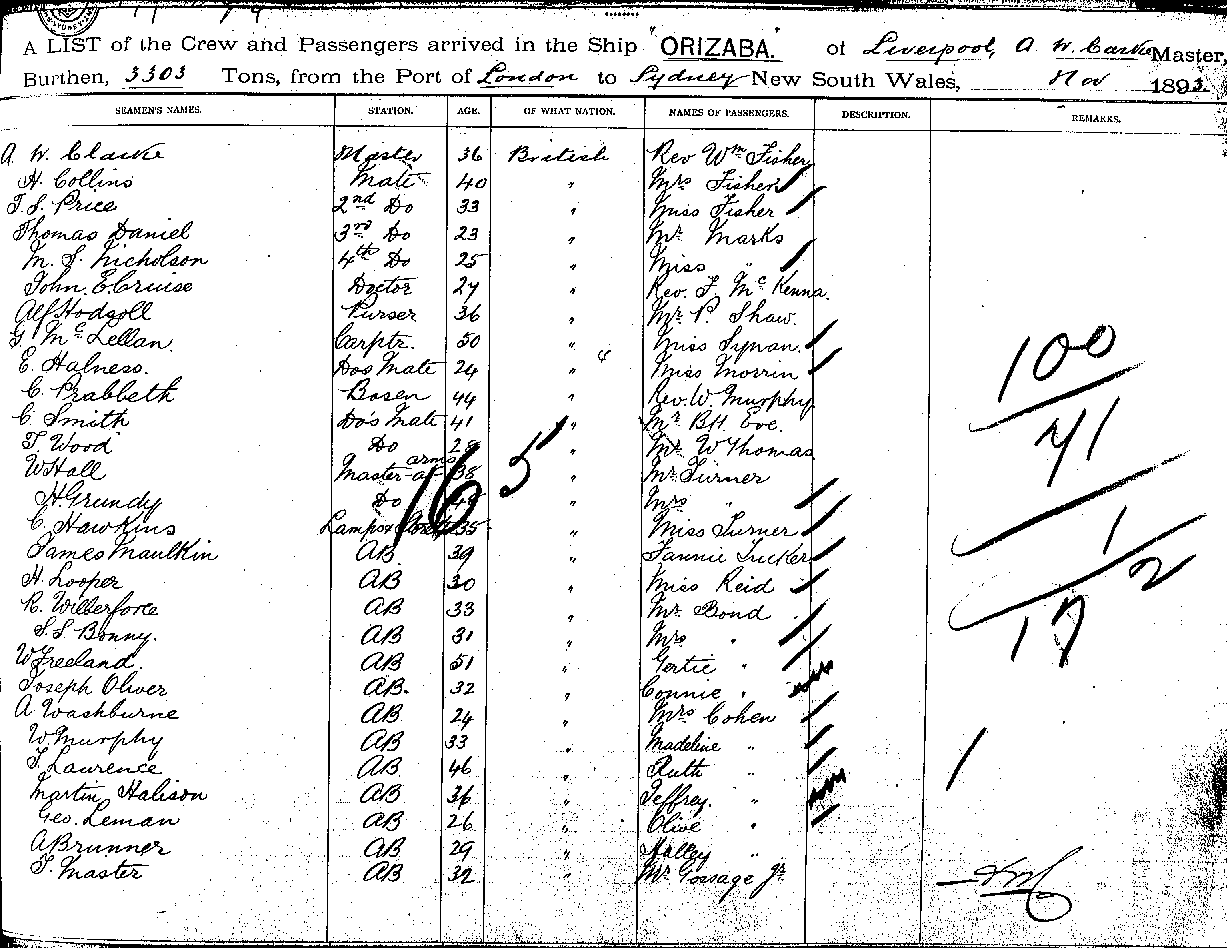 A LIST of the Crew and Passengers arrived in the Ship "ORIZABA." of Liverpool, A. W. Clarke Master,
Burthen, 3303 Tons, from the Port of London to Sydney New South Wales, Nov 1893
SEAMEN'S NAMES. STATION. AGE. OF WHAT NATION. NAMES OF PASSENGERS. DESCRIPTION. REMARKS.
A. W. Clarke Master 36 British Rev Wm Fisher
H. Collins Mate 40 " Mrs Fisher
T. S. Price 2nd Do 33 " Miss Fisher
Thomas Daniel 3rd Do 23 " Mr Marks
M. S. Nicholson 4th Do 25 " Miss "
John. E. Cruise Doctor 27 " Rev. F. McKenna.
Alf Hodsoll Purser 36 " Mr P. Shaw.
G. McLellan. Carptr. 50 " Miss Synan.
E. Halness. Dos Mate 24 " Miss Morrin
C. Prabbeth Bosen 44 " Rev. W. Murphy
C. Smith Do's Mate 41 " Mr B.H.
T Wood Do " Mr W Thomas
W Hall Master-at-arms 38 " Mr Turner
H. Grundy Do " Mrs "
C. Hawkins Lamps & 35 " Miss Turner
James Maulkin AB 39 " Fannie Tucker
H. Looper AB 30 " Miss Reid
R. Wilberforce AB 33 " Mr Bond
S. S. Bonny. AB 31 " Mrs "
W Freeland. AB 51 " Gertie "
Joseph Oliver AB. 32 " Connie "
A Washburne AB 24 " Mrs Cohen
W. Murphy AB 33 " Madeline "
T. Laurence AB 46 " Ruth "
Martin Halison AB 36 " Jeffrey. "
Geo. Leman AB 26 " Olive "
A Brunner AB 29 " "
T. Master AB 32 Mr Gossage Jr
165
100
71
1
2
17
1